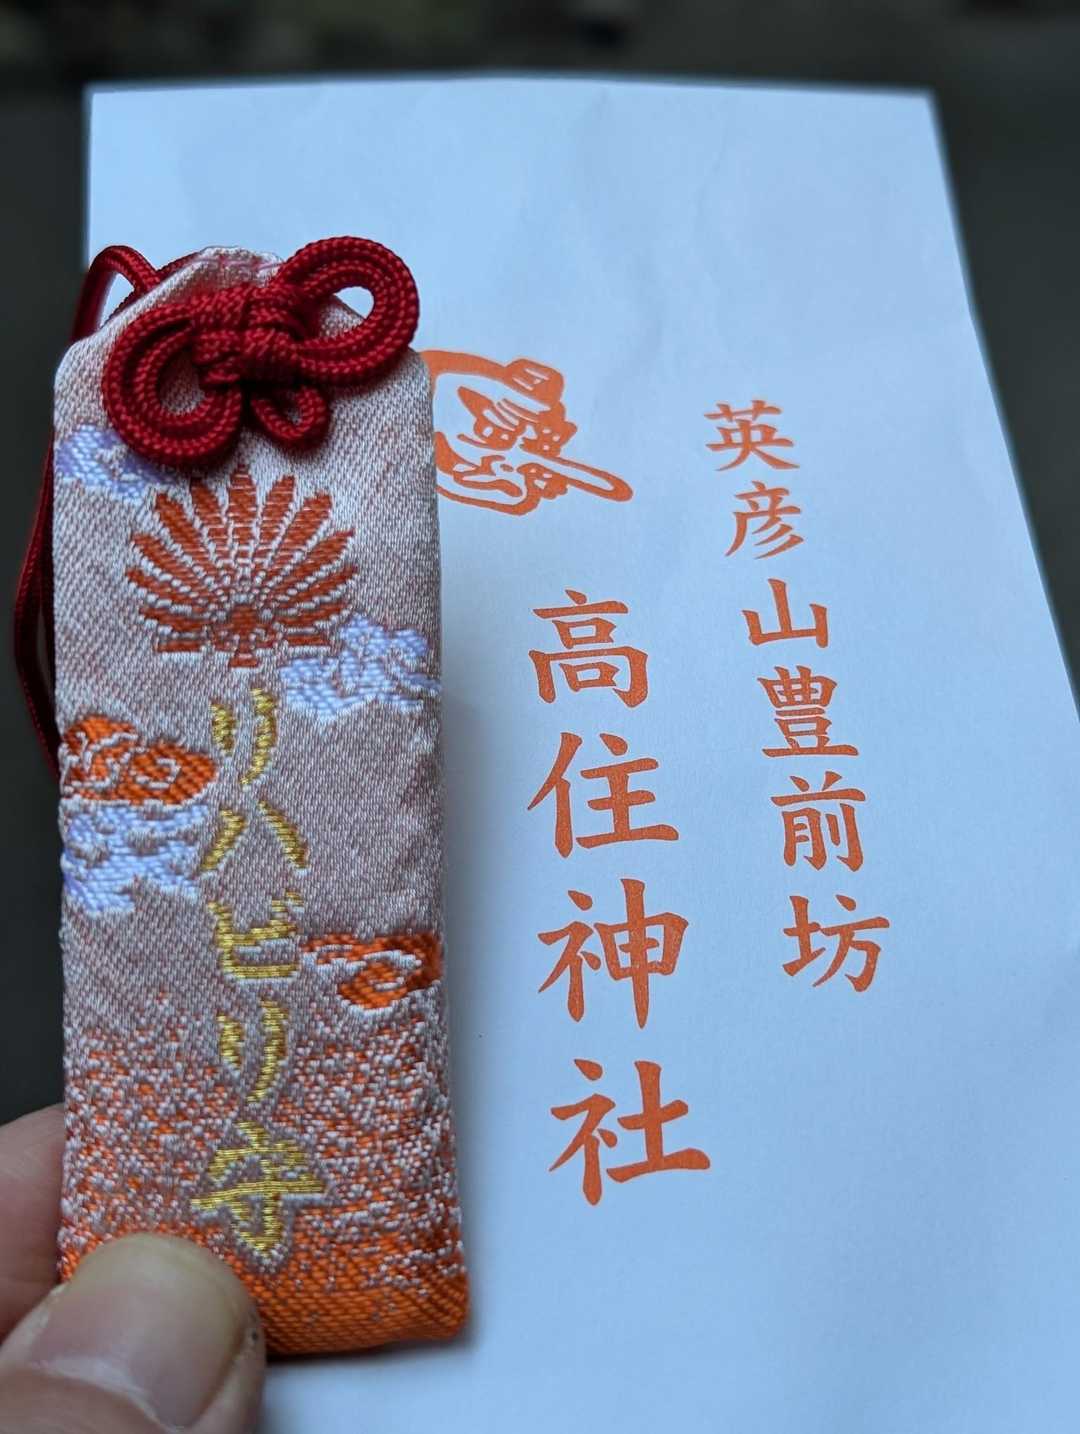 英彦山豊前坊
高住神社
リハビリ守